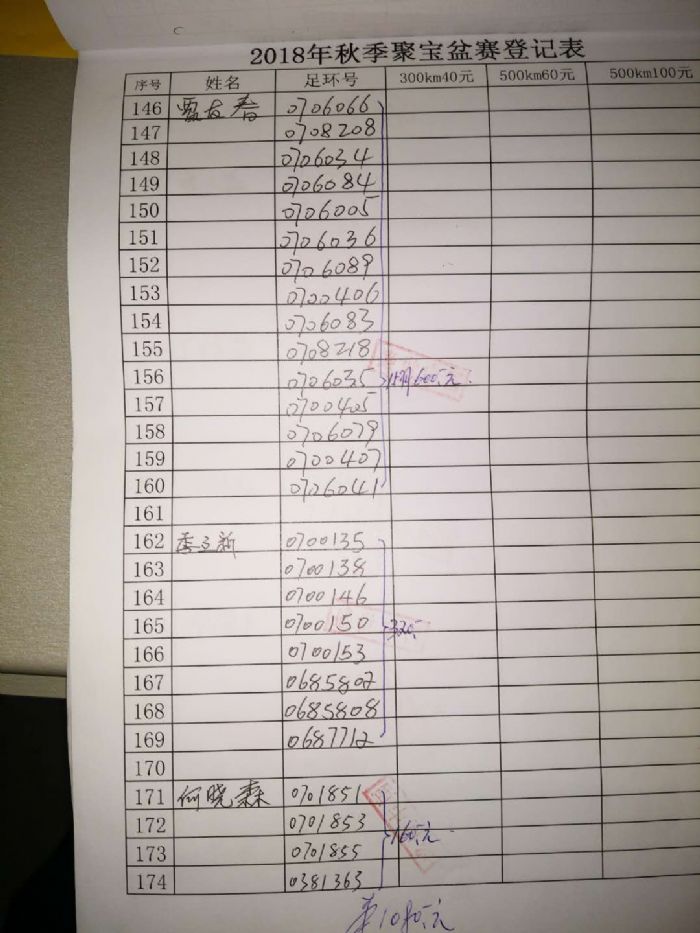 2018年秋季聚宝盆赛登记表
序号 姓名 足环号 300km40元 500km60元 500km100元
146 贾友春 0706066
147 0708208
148 0706034
149 0706084
150 0706005
151 0706036
152 0706089
153 0700406
154 0706083
155 0708218
156 0706035 600元
157 0700405
158 0706079
159 0700407
160 0706041
161
162 季立新 0700135
163 0700138
164 0700146
165 0700150 320
166 0700153
167 0685802
168 0685808
169 0687712
170
171 何晓森 0701851
172 0701853 160元
173 0701855
174 0381363
1080元